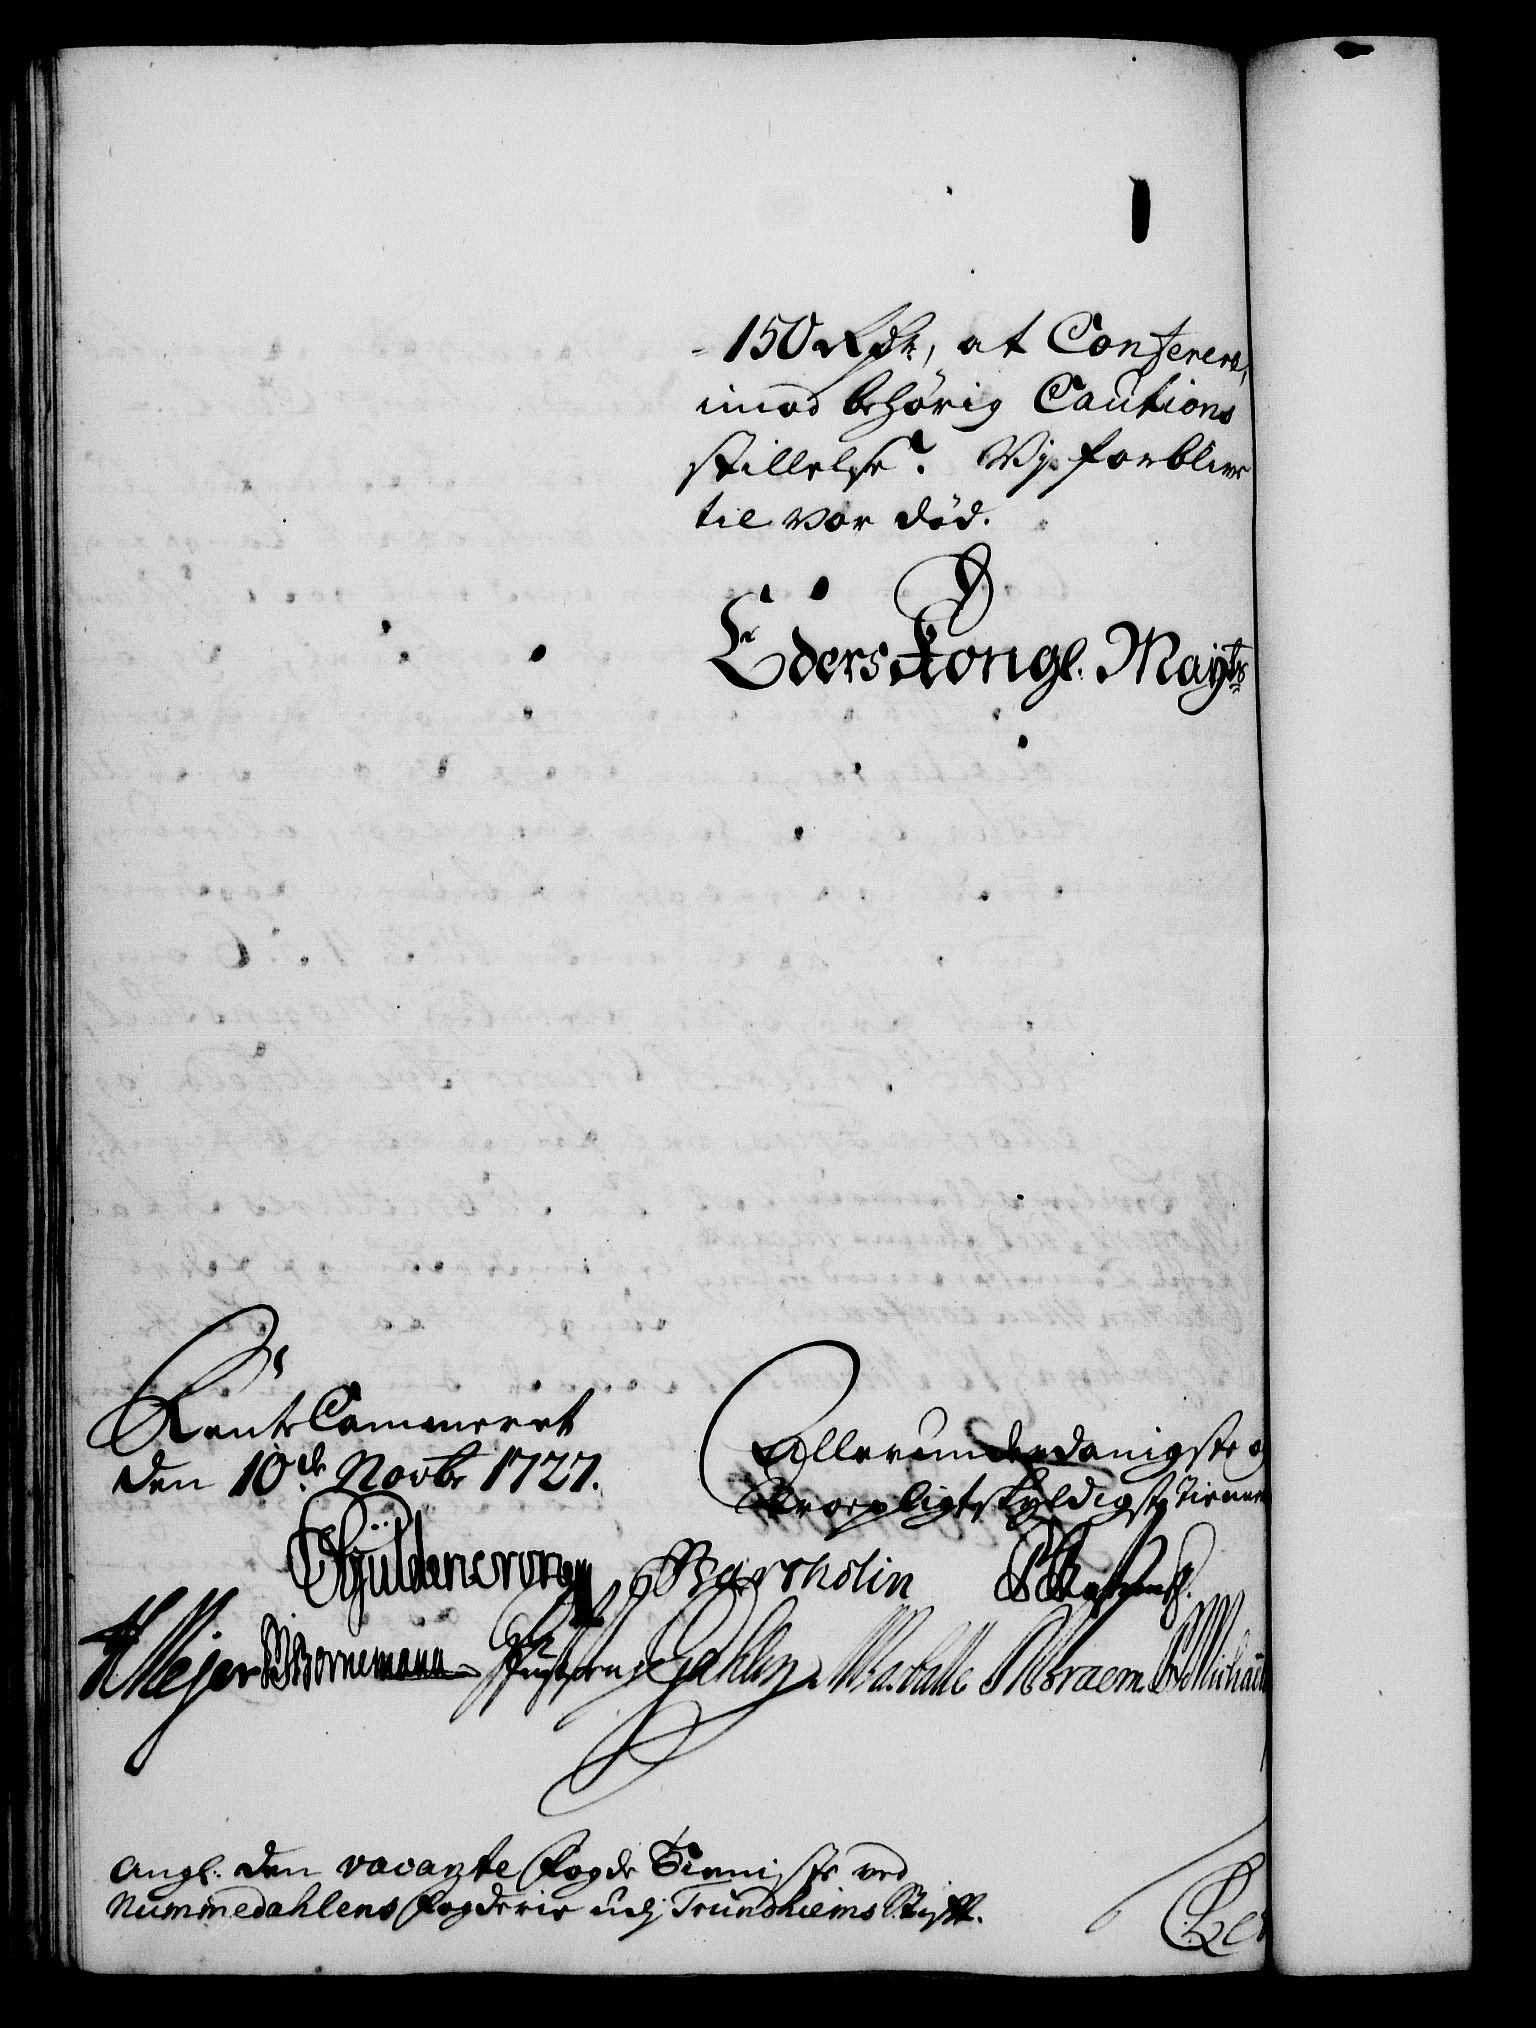 - 150 Rdr, at Conferere,
imod behörig Cautions
stillelse? Vj forblive
til vor död.
Eders Kongl. Mayts
Rente Cammeret
den 10de Novbr 1727.
Allerunderdanigste og
troepligtskyldigste tienere
Güldencrone Bartholin
H Mejer B Bornemann
Angl. den vacante Fogde Tieniste ved
Nummedahlens Fogderie udj Trundhiems Stift.